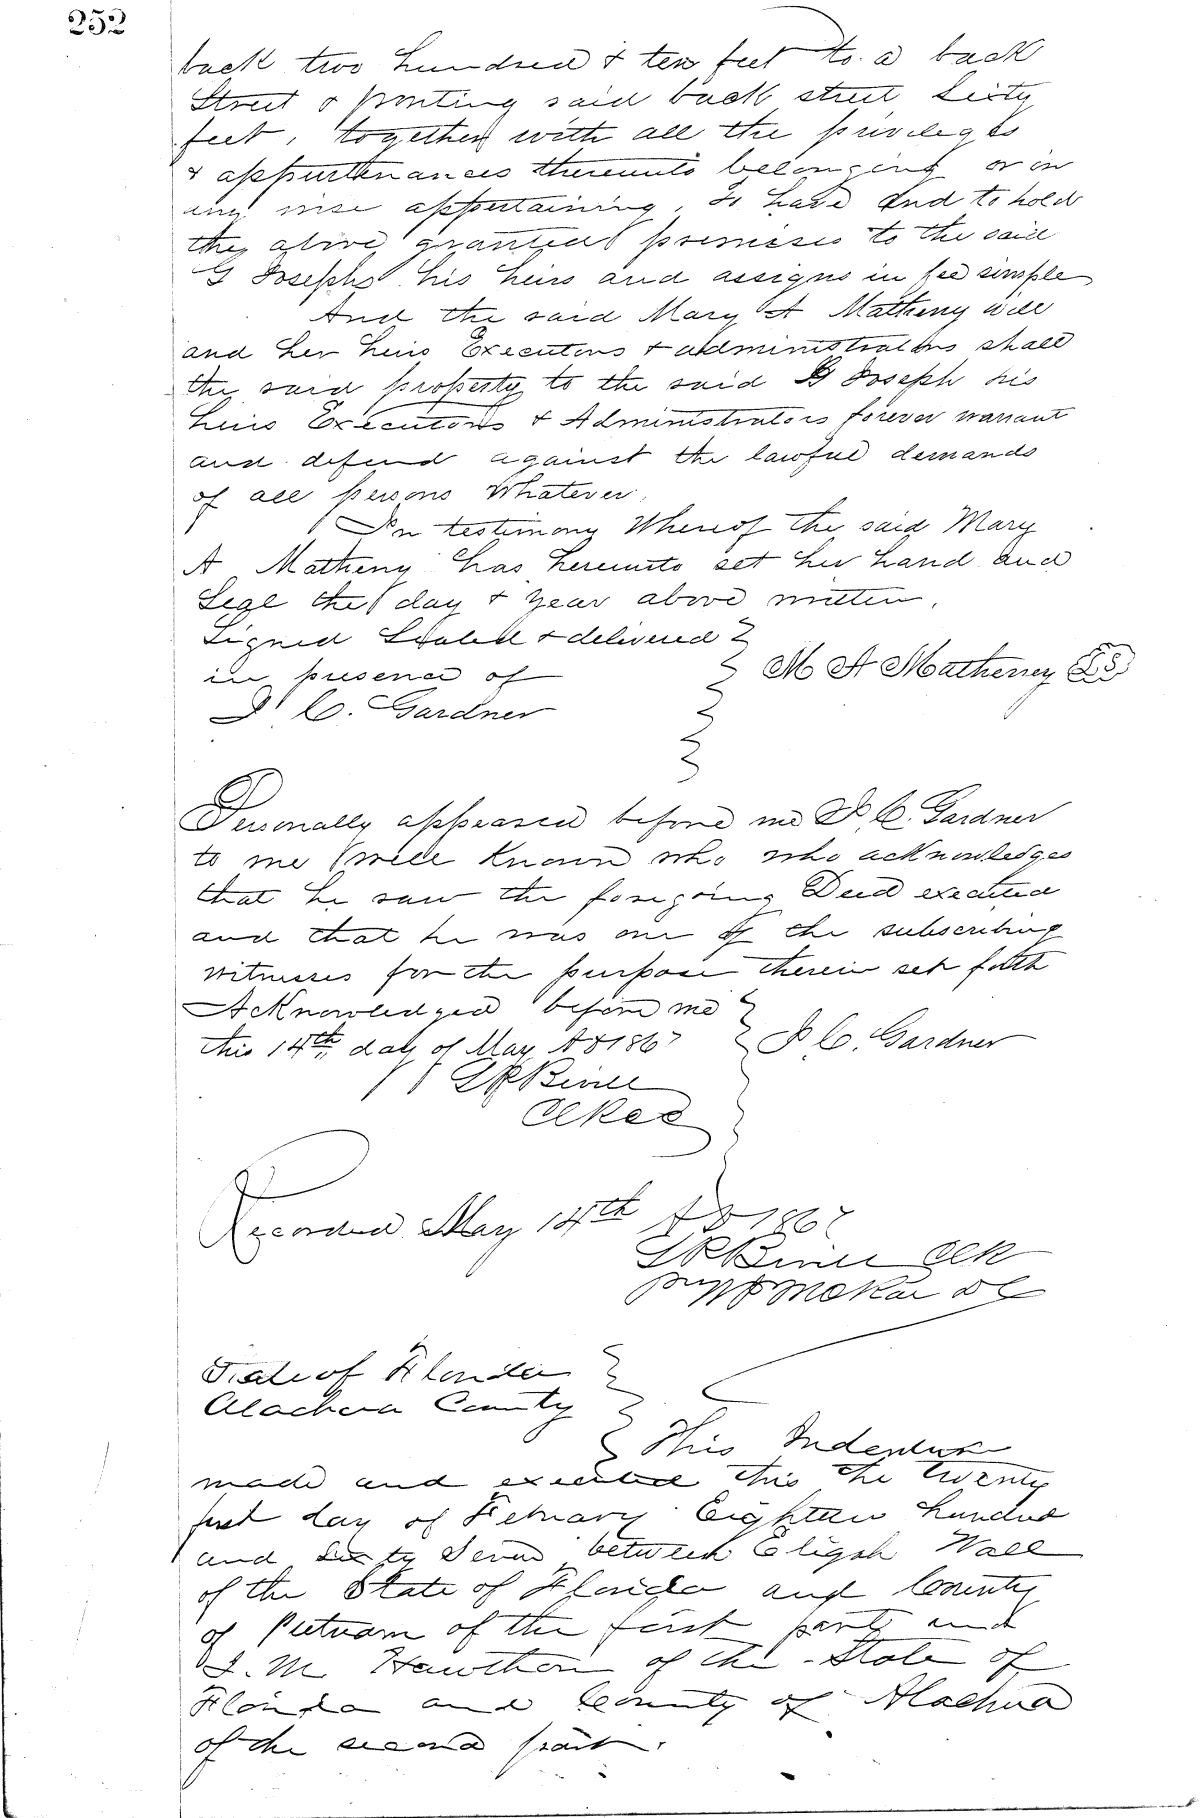 252
back two hundred & ten feet to a back
Street & fronting said back street Sixty
feet, together with all the privileges
& appurtenances thereunto belonging or in
any wise appertaining, To have and to hold
the above granted premises to the said
G Josephs his heirs and assigns in fee simple
And the said Mary A Matheny will
and her heirs Executors & administrators shall
the said property to the said G Joseph his
heirs Executors & Administrators forever warrant
and defend against the lawful demands
of all persons Whatever.
In testimony Whereof the said Mary
A Matheny has hereunto set her hand and
Seal the day & year above written.
Signed Sealed & delivered
in presence of
M A Matheney LS
J C. Gardner
Personally appeared before me J C. Gardner
to me well Known who who acknowledges
that he saw the foregoing Deed executed
and that he was one of the subscribing
witnesses for the purpose therein set forth
Acknowledged before me
this 14th day of May AD 1867
J C. Gardner
Clk
Recorded May 14th AD 1867
Clk
DC
State of Florida
Alachua County
This Indenture
made and executed this the twenty
first day of Febuary Eighteen hundred
and Sixty Seven between Eligah Wall
of the State of Florida and County
of Putnam of the first part and
J. M Hawthorn of the State of
Florida and County of Alachua
of the second part.